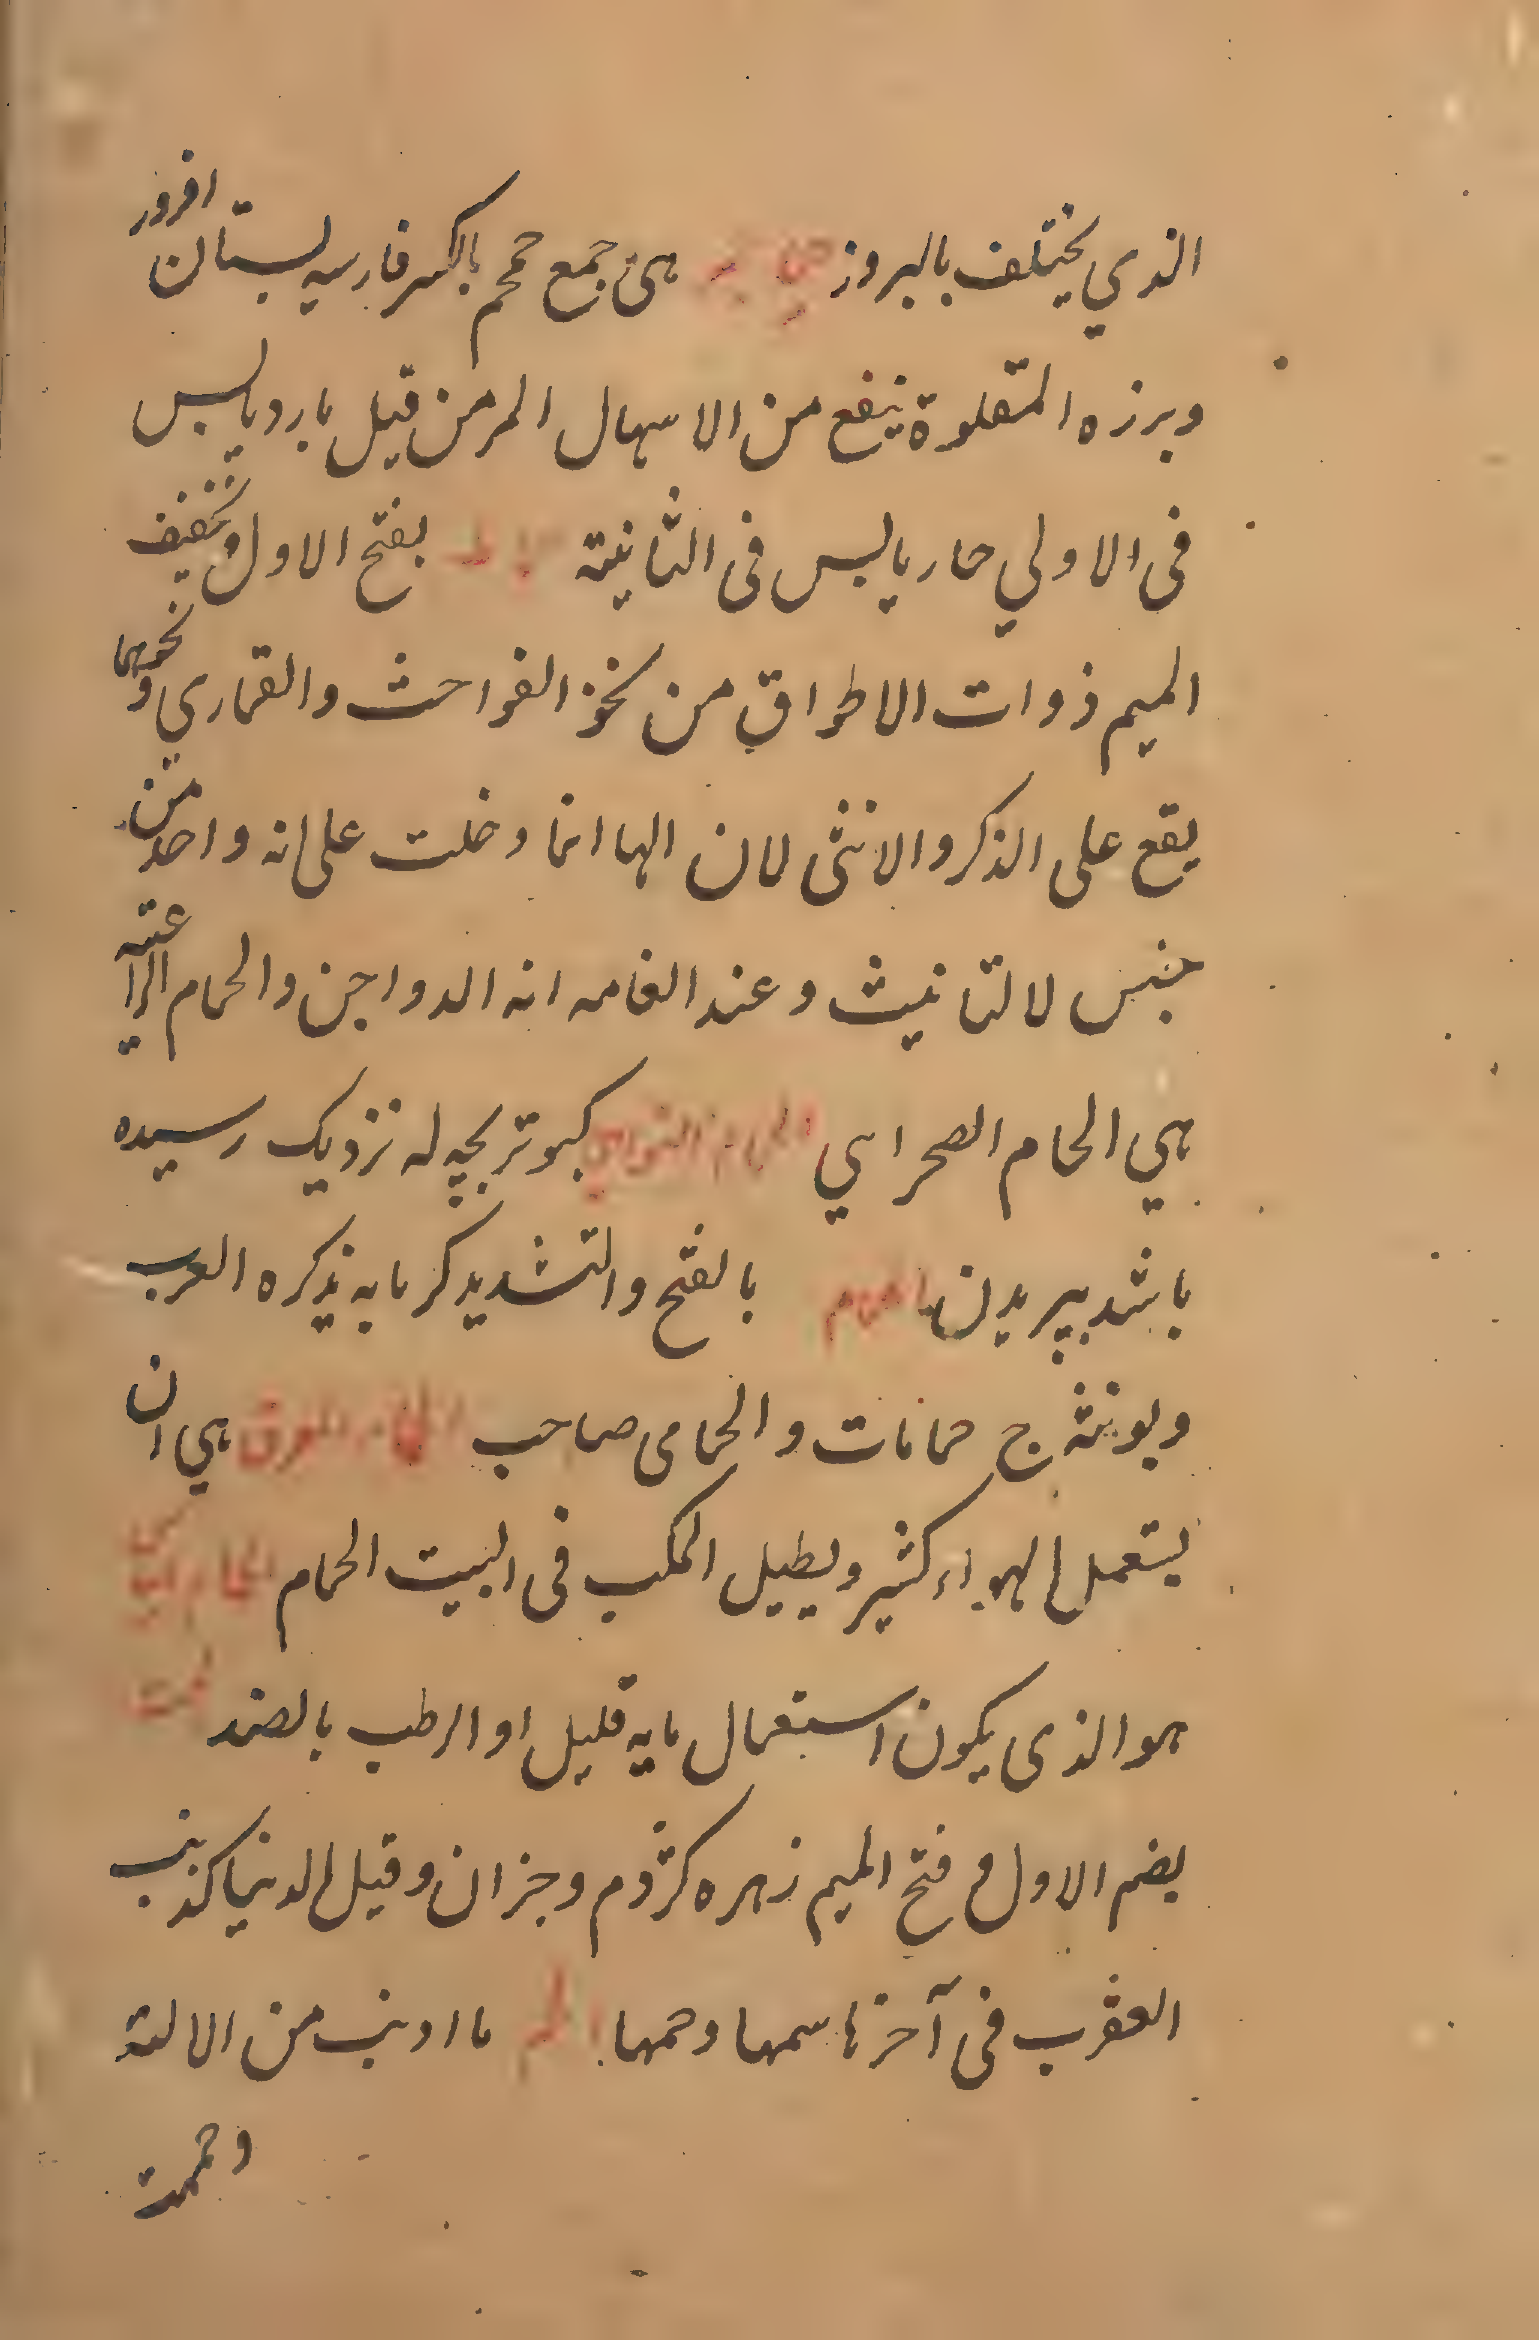 الذي يختلف بالبروز هی جمع حمحم بالكسر فارسيه بستان افروز
وبرزه المقلوة ينفع من الاسهال المزمن قيل بارد يابس
فی الاولي حار يابس فی الثانيته بفتح الاول وتخفيف
الميم ذوات الاطواق من نحو الفواخت والقماري ونحوهما
يقع علی الذكر والانثی لان الها انما دخلت علی انه واحد من
جنس لا لتانيث وعند العامه انه الدواجن والحمام الراعيته
هي الحمام الصحرايي الحمام النواهض كبوتر بچه له نزديک رسيده
باشد بپريدن الحمام بالفتح والتشديد كرمابه يذكره العرب
ويونثه ج حمامات والحمامی صاحب الحمام المعرق هي ان
يستعمل الهواء كثير ويطيل المكث فی البيت الحمام الحمام
هو الذی يكون استعمال مايه قليل او الرطب بالضد حمت
بضم الاول و فتح الميم زهره كژدم وجزان وقيل الدنيا كذنب
العقرب فی آخرها سمها وحمها الحم ما اذيب من الالية
وحمت